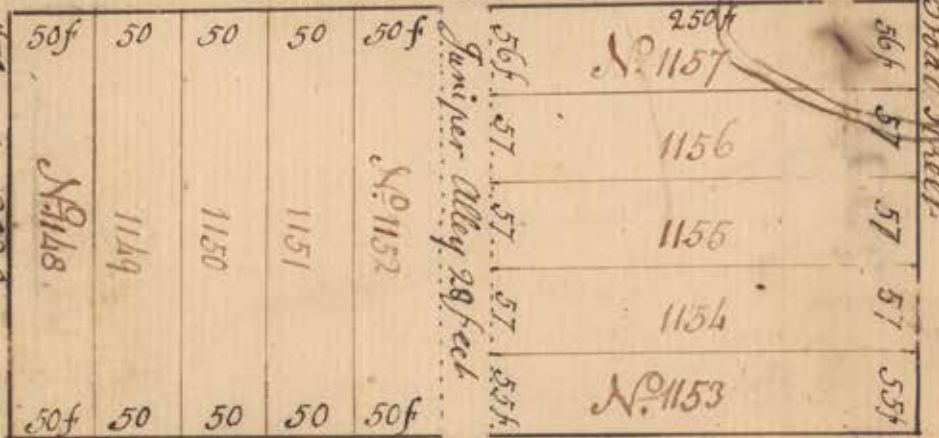 50f 50 50 50 50f
No. 1148.
1149
1150
1151
No. 1152
50f 50 50 50 50f
Juniper Alley 28 feet
56f. 57. 57. 57. 55f.
250f
No. 1157
1156
1155
1154
No. 1153
56f 57 57 57 55f
Street